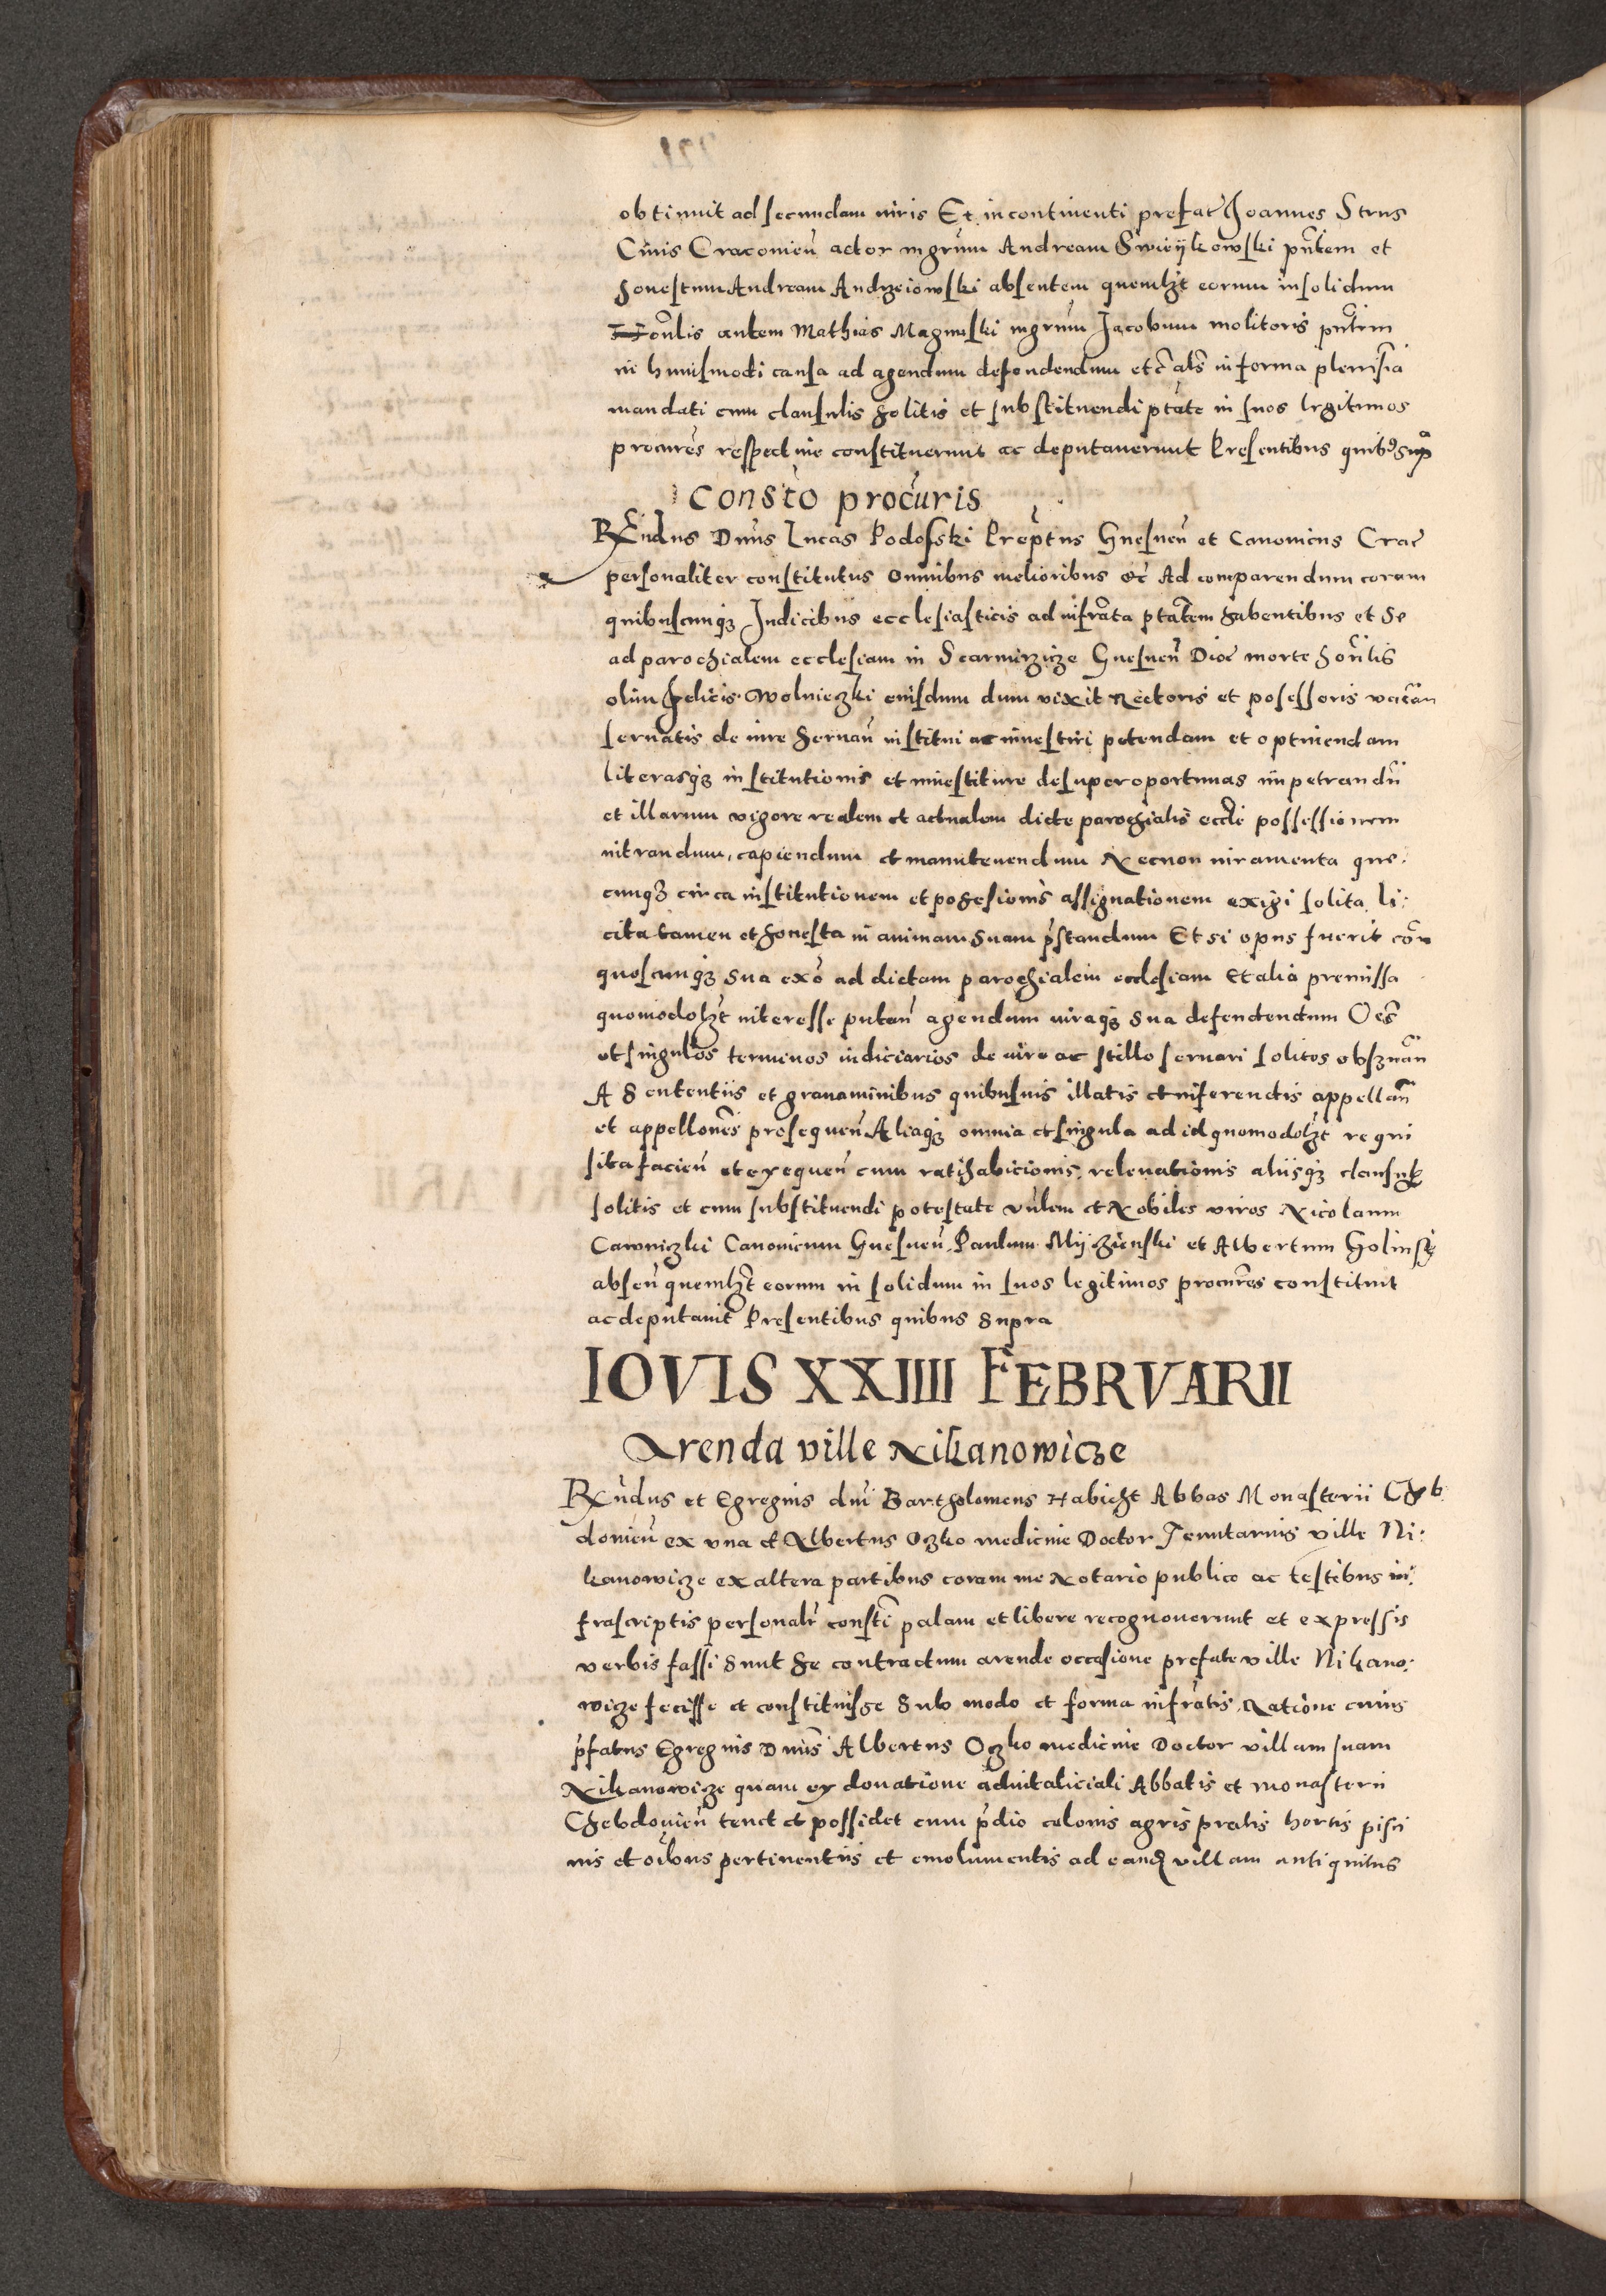 obtinuit ad secundam iuris Et incontinenti prefat Joannes Strus
Ciuis Cracouien̄ actor mgrum Andream Swieykowski pn̄tem et
honestum Andream Andrzeiowski absentem quemlzt eorum insolidum
Hon̄lis autem Mathias Magnuski mgrum Jacobum molitoris pn̄tem
in huiusmodi causa ad agendum defendendum etc̄ als̄ in forma plenis̄ia
mandati cum clausulis solitis et substituendi ptāte in suos legitimos
procur̄es respectiue constituerunt ac deputauerunt Presentibus quibus sup̄
Constō procūris
Rēndus Dn̄us Lucas Podoski Prep̄tus Gnesnen̄ et Canonicus Crac̄
personaliter constitutus omnibus melioribus etc̄ Ad comparendum coram
quibuscunqȝ Judicibus ecclesiasticis ad infrāta ptātem habentibus et se
ad parochialem ecclesiam in Scarmirzicze Gnesnen̄ Dioc̄ morte hon̄lis
olim Felicis Wolniczki eiusdum dum vixit Rectoris et posessoris vacān
seruatis de iure seruan̄ institui ac inuestiri petendam et optinendam
literasqȝ institutionis et inuestiture desuper oportunas impetrandū
et illarum vigore realem et actualem dicte parochialis eccl̄e possessionem
nitrandum, capiendum et manutenendum Necnon iuramenta que:
cunqȝ circa institutionem et posesionis assignationem exigi solita, li:
cita tamen et honesta in animam suam p̄standum Et si opus fuerit con̄
quoscunqȝ sua ex̄o ad dictam parochialem ecclesiam Et alia premissa
quomodolzt interesse putan̄ agendum iuraqȝ sua defendendum Oes̄
et singulos terminos iudiciarios de iure ac stillo seruari solitos obsȝuān
A sententiis et grauaminibus quibusuis illatis et inferendis appellan̄
et appellon̄es prosequen̄ Aliaqȝ omnia et singula ad id quomodolzt requi
sita facien̄ et exequen̄ cum ratihabicionis, releuationis aliisqȝ clausul̄
solitis et cum substituendi potestate vn̄lem et Nobiles viros Nicolaum
Cawniczki Canonicum Gnesnen̄ Paulum Myzienski et Albertum Golinsk̄
absen̄ quemlzt eorum in solidum in suos legitimos procur̄es constituit
ac deputauit Presentibus quibus supra
IOVIS XXIIII FEBRVARII
Arenda ville Nikanowicze
Rn̄dus et Egregius dn̄i Bartholomeus Habicht Abbas Monasterii Cheb
douien̄ ex vna et Albertus Oczko medicine Doctor Tenutarius ville Ni:
kanowicze ex altera partibus coram me Notario publico ac testibus in:
frascriptis personalr̄ constī palam et libere recognouerunt et expressis
verbis fassi sunt se contractum arende occasione prefate ville Nikano:
wicze fecisse et constituisse sub modo et forma infrātis, Ratione cuius
p̄fatus Egregius Dn̄us Albertus Oczko medicine Doctor villam suam
Nikanowicze quam ex donatione aduitaliciali Abbatis et monasterii
Chebdouien̄ tenet et possidet cum p̄dio colonis agris pratis hortis pisci
nis et oībus pertinentiis et emolumentis ad eand̄ villam antiquitus